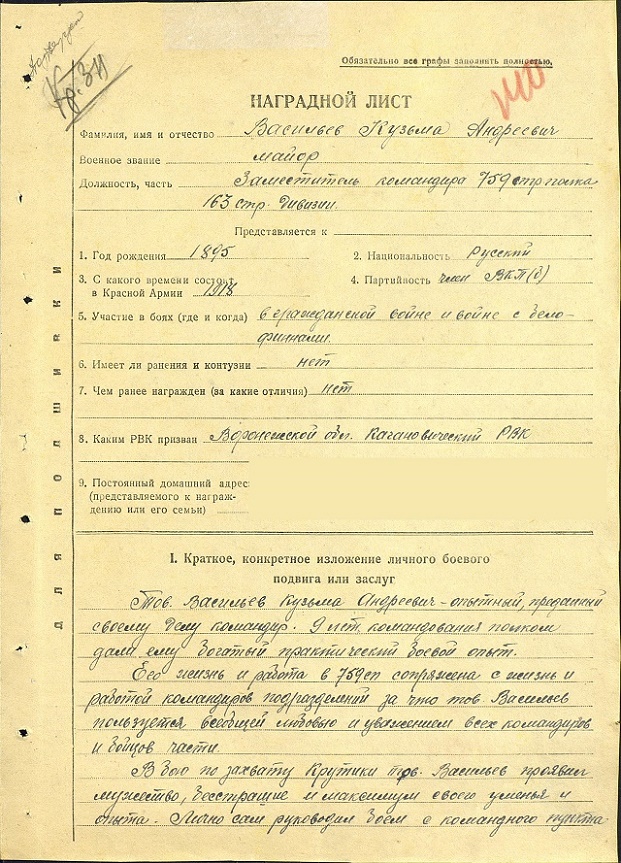 Кр. Зн
Обязательно все графы заполнять полностью.
НАГРАДНОЙ ЛИСТ
Фамилия, имя и отчество Васильев Кузьма Андреевич
Военное звание майор
Должность, часть Заместитель командира 759 стр полка
163 стр. Дивизии.
Представляется к
1. Год рождения 1895
2. Национальность Русский
3. С какого времени состоит
в Красной Армии 1918
4. Партийность член ВКП(б)
5. Участие в боях (где и когда) в гражданской войне и войне с бело-
финнами.
6. Имеет ли ранения и контузии нет
7. Чем ранее награжден (за какие отличия) нет
8. Каким РВК призван Воронежской обл. Кагановический РВК
9. Постоянный домашний адрес
(представляемого к награж-
дению или его семьи)
ДЛЯ ПОДШИВКИ
I. Краткое, конкретное изложение личного боевого
подвига или заслуг
Тов. Васильев Кузьма Андреевич - опытный, преданный
своему Делу командир. 9 лет командования полком
дали ему богатый практический боевой опыт.
Его жизнь и работа в 759 сп сопряжена с жизнью и
работой командиров подразделений за что тов. Васильев
пользуется всеобщей любовью и уважением всех командиров
и бойцов части.
В бою по захвату Крутики тов. Васильев проявил
мужество, бесстрашие и максимум своего уменья и
опыта. Лично сам руководил боем с командного пункта